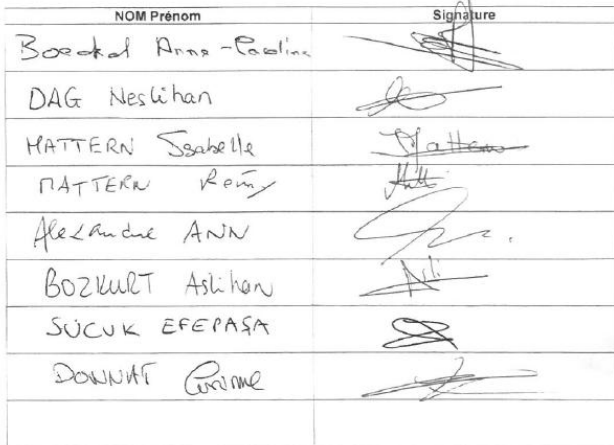 NOM Prénom Signature
Boeckel Anne-Caroline
DAG Neslihan
MATTERN Isabelle Mattern
MATTERN Remy
Alexandre ANN
BOZKURT Aslihan Asli
SUCUK EFEPAŞA
DONNAT